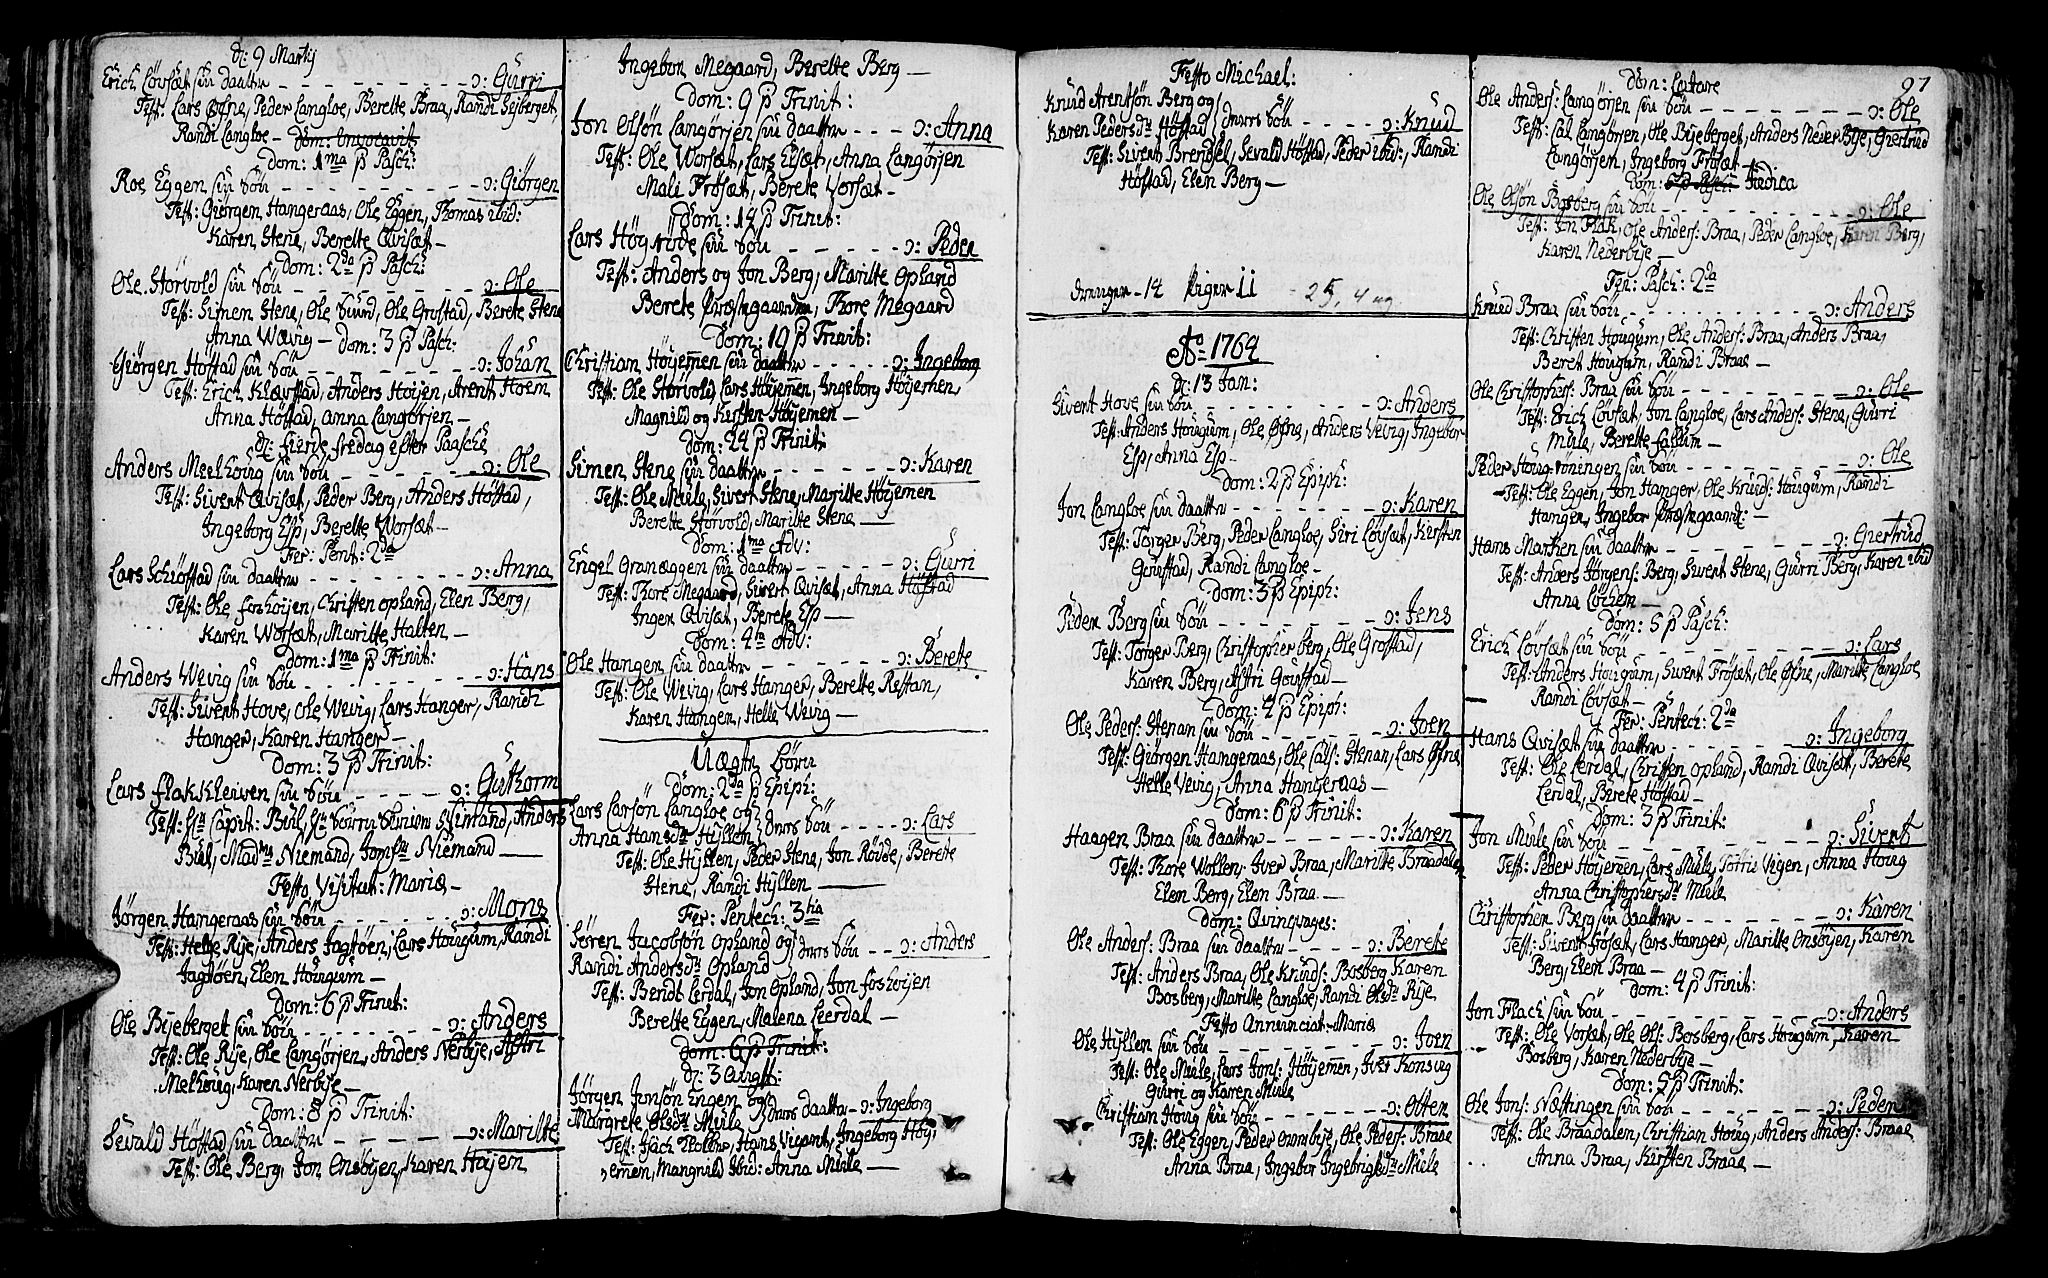 d: 9 Martij
Erich Lövsæt sin daatter - - - - - - - ɔ: Gurri
Test: Lars Øfne, Peder Langloe, Berette Braa, Randi Leyberget,
Randi Langloe - dom: Invocavit
Dom: 1ma p Pasch:
Roe Eggen sin Sön - - - - - - - ɔ: Giörgen
Test: Giörgen Hangeraas, Ole Eggen, Thomas ibid:
Karen Stene, Berette Qvisæt -
Dom: 2da p Pasch:
Ole Störvold sin Sön - - - - - - - ɔ: Ole
Test: Simen Stene, Ole Suurd, Ole Grostad, Berete Stene
Anna Wævig - dom: 3 p Pasch:
Giörgen Höstad sin Sön - - - - - - - ɔ: Johan
Test: Erich Klævstad, Anders Hoyen, Arent Hoem
Anna Höstad, Anna Langörjen -
d: fierde fredag efter Paasche
Anders Meelhoüg sin Sön - - - - - ɔ: Ole
Test: Sivert Qvisæt, Peder Berg, Anders Höstad,
Ingeborg Esp, Berette Worsæt -
Fer: Pent: 2da
Lars Schiöstad sin daatter - - - - - - - ɔ: Anna
Test: Ole foshöijen, Christen Opland, Elen Berg,
Karen Worsæt, Maritte Halten -
dom: 1ma p Trinit:
Anders Wevig sin Sön - - - - - - - ɔ: Hans
Test: Sivert Hove, Ole Wevig, Lars Hanger, Randi
Hanger, Karen Hanger -
Dom: 3 p Trinit:
Lars Flakkleiven sin Sön - - - - - ɔ: Guthorm
Test: Hr Capit: Bull, Hr Lieutn, Anders
Bull, Madme Niemand, Jomfru Niemand -
Festo Visitat: Mariæ -
Jörgen Hangeraas sin Sön - - - - - - - ɔ: Mons
Test: Helge Rije, Anders Jagtöen, Lars Hougum, Randi
Jagtöen, Elen Hougum -
dom: 6 p Trinit:
Ole Bijeberget sin Sön - - - - - - - ɔ: Anders
Test: Ole Rije, Ole Langörjen, Anders Nerbije, Astri
Melhoug, Karen Nerbije -
Dom: 8 p Trinit:
Sevald Höstad sin daatter - - - - - - - ɔ: Maritte
Test: Ole Berg, Jon Onsöyen, Karen Höijem
Ingebor Megaard, Berette Berg -
Dom: 9 p Trinit:
Jon Olsön Langörjen sin daatter - - - ɔ: Anna
Test: Ole Worsæt, Lars Elsæt, Anna Langörjen
Mali Frösæt, Berete Vorsæt -
Dom: 14 p Trinit:
Lars Högröde sin Sön - - - - - - ɔ: Peder
Test: Anders og Jon Berg, Maritte Opland
Berete Præstegaarden, Thore Megaard
Dom: 19 p Trinit:
Christian Höyemen sin daatter - - - - ɔ: Ingeborg
Test: Ole Störvold, Lars Höyemen, Ingeborg Höyemen,
Magnild og Kirsten Höyemen -
dom: 24 p Trinit:
Simen Stene sin daatter - - - - - - ɔ: Karen
Test: Ole Mule, Sivert Stene, Maritte Höyemen
Berette Störvold, Maritte Stene -
Dom: 1ma Adv:
Engel Granæggen sin daatter - - - - - ɔ: Gurri
Test: Thore Megaard, Sivert Qvisæt, Anna Höstad
Inger Qvisæt, Berete Esp -
Dom: 4ta Adv:
Ole Hangen sin daatter - - - - - - ɔ: Berete
Test: Ole Wevig, Lars Hanger, Berette Restan,
Karen Hangen, Helle Wevig -
Uægte Börn
Dom: 2da p Epiph:
Lars Larsön Langloe og
Anna Hansdr Hyllen } deres Sön - - - - ɔ: Lars
Test: Ole Hyllen, Peder Stene, Jon Rödde, Berete
Stene, Randi Hyllen -
Fer: Pentech: 3tia
Sören Jacobsön Opland og
Randi Andersdr Opland } deres Sön - - - ɔ: Anders
Test: Bendt Lerdal, Jon Opland, Jon foshöijen
Berette Eggen, Malena Leerdal -
dom: 6 p Trinit:
d: 3 Augst:
Jörgen Jonsön Engen og
Margrete Olsdr Mule } deres daatter - ɔ: Ingeborg
Test: Isach Holden, Hans Visant, Ingeborg Höy,,
,,emen, Mangnild Ibid: Anna Mule -
Festo Michael:
Knud Arentsön Berg og
Karen Pedersdr Höstad } deres Sön - - - - - ɔ: Knud
Test: Sivert Brendsel, Sevald Höstad, Peder ibid:, Randi
Höstad, Elen Berg -
drenger - 14 Piger 11 - 25, 4 ug.
Ao 1764
d: 13 Jan:
Sivert Hove sin Sön - - - - - - - ɔ: Anders
Test: Anders Hougum, Ole Øfne, Anders Vevig, Ingebor
Esp, Anna Esp -
Dom: 2 p Epiph:
Jon Langloe sin daatter - - - - - - ɔ: Karen
Test: Torger Berg, Peder Langloe, Siri Lövsæt, Kirsten
Goustad, Randi Langloe -
Dom: 3 p Epiph:
Peder Berg sin Sön - - - - - - - ɔ: Jens
Test: Torger Berg, Christopher berg, Ole Grostad,
Karen Berg, Astri Goustad -
Dom: 4 p Epiph:
Ole Peders: Stenan sin Sön - - - - - ɔ: Joen
Test: Giörgen Hangeraas, Ole Lals: Stenan, Lars Øfne
Helle Vevig, Anna Hangeraas -
Dom: 6 p Trinit:
Haagen Braa sin daatter - - - - - ɔ: Karen
Test: Thore Wollen, Iver Braa, Maritte Braadalen
Elen Berg, Elen Braa -
Dom: Qvinqvages:
Ole Anders: Braa sin daatter - - - - ɔ: Berete
Test: Anders Braa, Ole Knuds: Bosberg Karen
Bosberg, Maritte Langloe, Randi Olsdr Rije
Festo Annunciat: Mariæ
Ole Hyllen sin Sön - - - - - - - ɔ: Joen
Test: Ole Mule, Lars Jons: Höyemen, Iver Konsvig
Gurri og Karen Mule
Christian Houg sin Sön - - - - - - ɔ: Osten
Test: Ole Eggen, Peder Overbije, Ole Peders: Braae
Anna Braa, Ingebor Ingebrigtsdr Mule
97
Dom: Lætare
Ole Anders: Langörjen sin Sön - - - - - - ɔ: Ole
Test: Lal Langörjen, Ole Bijeberget, Anders Neder Bije, Giertrud
Langörjen, Ingeborg Frösæt -
Dom: 6 p Pasch: Judica
Ole Olsön Bosberg sin Sön - - - - - - - ɔ: Ole
Test: Jon Flak, Ole Anders: Braa, Peder Langloe, Karen Berg,
Karen Nederbije -
Fer: Pasch: 2da
Knud Braa sin Sön - - - - - - - ɔ: Anders
Test: Christen Hougum, Ole Anders: Braa, Anders Braa,
Beret Hougum, Randi Braae -
Ole Christophers: Braa sin Sön - - - - - ɔ: Ole
Test: Erich Lövsæt, Jon Langloe, Lars Anders: Stene, Gurri
Mule, Berette Fallum -
Peder Houg röningen sin Sön - - - - - - ɔ: Ole
Test: Ole Eggen, Jon Hanger, Ole Knuds: Hougum, Randi
Hangen, Ingebor Præstegaard: -
Hans Marken sin daatter - - - - - - ɔ: Giertrud
Test: Anders Jörgens: Berg, Sivert Stene, Gurri Berg, Karen ibid
Anna Löchen -
Dom: 5 p Pasch:
Erich Lövsæt sin Sön - - - - - - - ɔ: Lars
Test: Anders Hougum, Sivert Frösæt, Ole Øfne, Maritte Langloe
Randi Lövsæt -
Fer: Pentech: 2da
Hans Qvisæt sin daatter - - - - - - ɔ: Ingeborg
Test: Ole Lerdal, Christen Opland, Randi Qvisæt, Berete
Lerdal, Berete Höstad -
Dom: 3 p Trinit:
Jon Mule sin Sön - - - - - - - ɔ: Sivert
Test: Peder Höyemen, Lars Mule, Torris Vigen, Anna Houg
Anna Christophersdr Mule
Christopher Berg sin daatter - - - - - ɔ: Karen
Test: Sivert Frösæt, Lars Hanger, Maritte Onsöyen, Karen
Berg, Elen Braa -
Dom: 4 p Trinit:
Jon Flach sin Sön - - - - - - - ɔ: Anders
Test: Ole Vorsæt, Ole Ols: Bosberg, Lars Hougum, Karen
Bosberg, Karen Nederbije -
Dom: 5 p Trinit:
Ole Jons: Næstingen sin Sön - - - - - - ɔ: Peder
Test: Ole Braadalen, Christian Houg, Anders Anders: Braae
Anna Braa, Kirsten Braae -